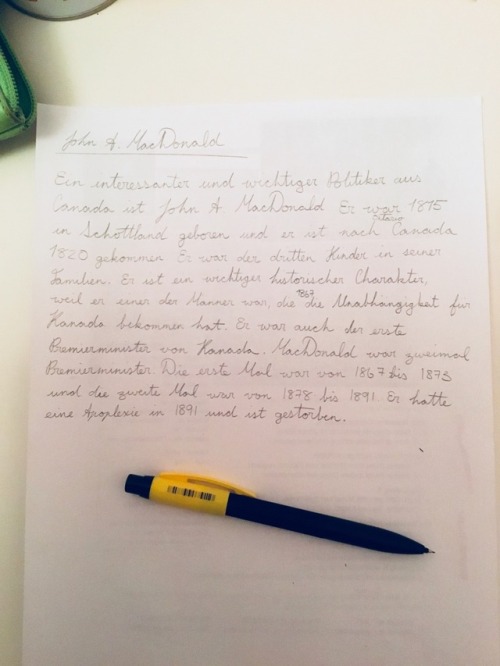 John A. MacDonald
Ein interessanter und wichtiger Politiker aus
Canada ist John A MacDonald Er war 1815
in Schottland geboren und er ist nach Canada
1820 gekommen Er war der dritten Kinder in seiner
Familien. Er ist ein wichtiger historischer Charakter,
weil er einer der Manner war, die 1867 die Unabhängigkeit fur
Kanada bekommen hat. Er war auch der erste
Premierminister von Kanada. MacDonald war zweimal
Premierminister. Die erste Mal war von 1867 bis 1873
und die zweite Mal war von 1878 bis 1891 Er hatte
eine Apoplexie in 1891 und ist gestorben.